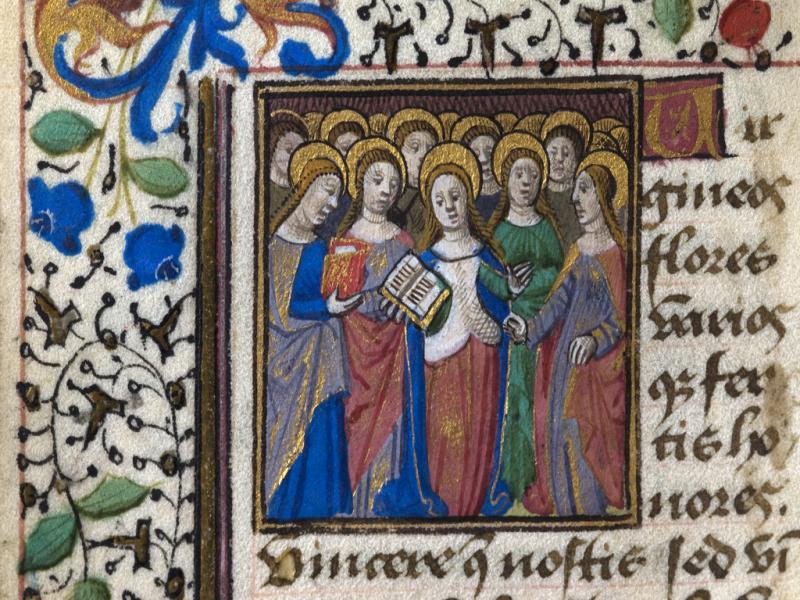 Vir
gineos
flores
varios
q3 fer
tis ho
nores.
Vincere q nostis sed vi